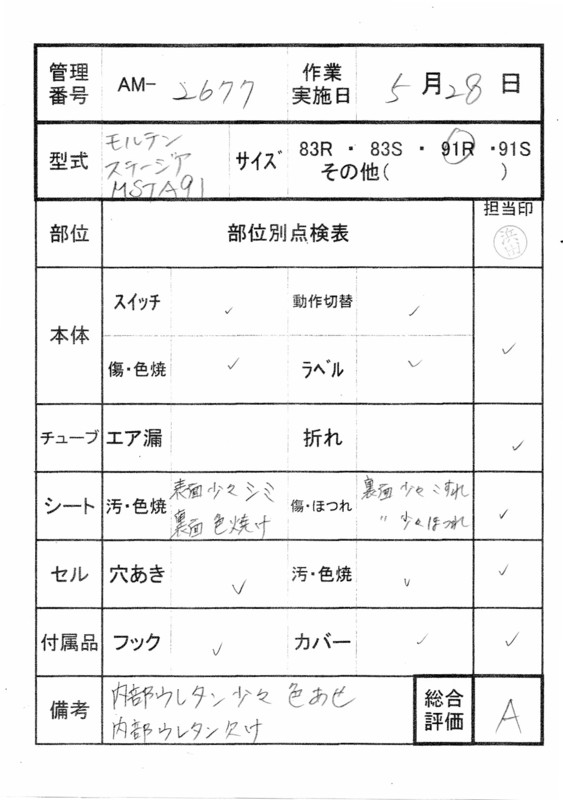 管理番号 AM- 2677 作業実施日 5月28日
型式 モルテン ステージア MSTA91 サイズ 83R ・ 83S ・ 91R ・91S
その他( )
担当印
部位 部位別点検表
本体 スイッチ ✓ 動作切替 ✓
傷・色焼 ✓ ラベル ✓ ✓
チューブ エア漏 折れ ✓
シート 汚・色焼 表面少々シミ 傷・ほつれ 裏面少々こすれ
裏面色焼け 〃 少々ほつれ ✓
セル 穴あき ✓ 汚・色焼 ✓ ✓
付属品 フック ✓ カバー ✓ ✓
備考 内部ウレタン少々色あせ
内部ウレタン欠け
総合評価 A